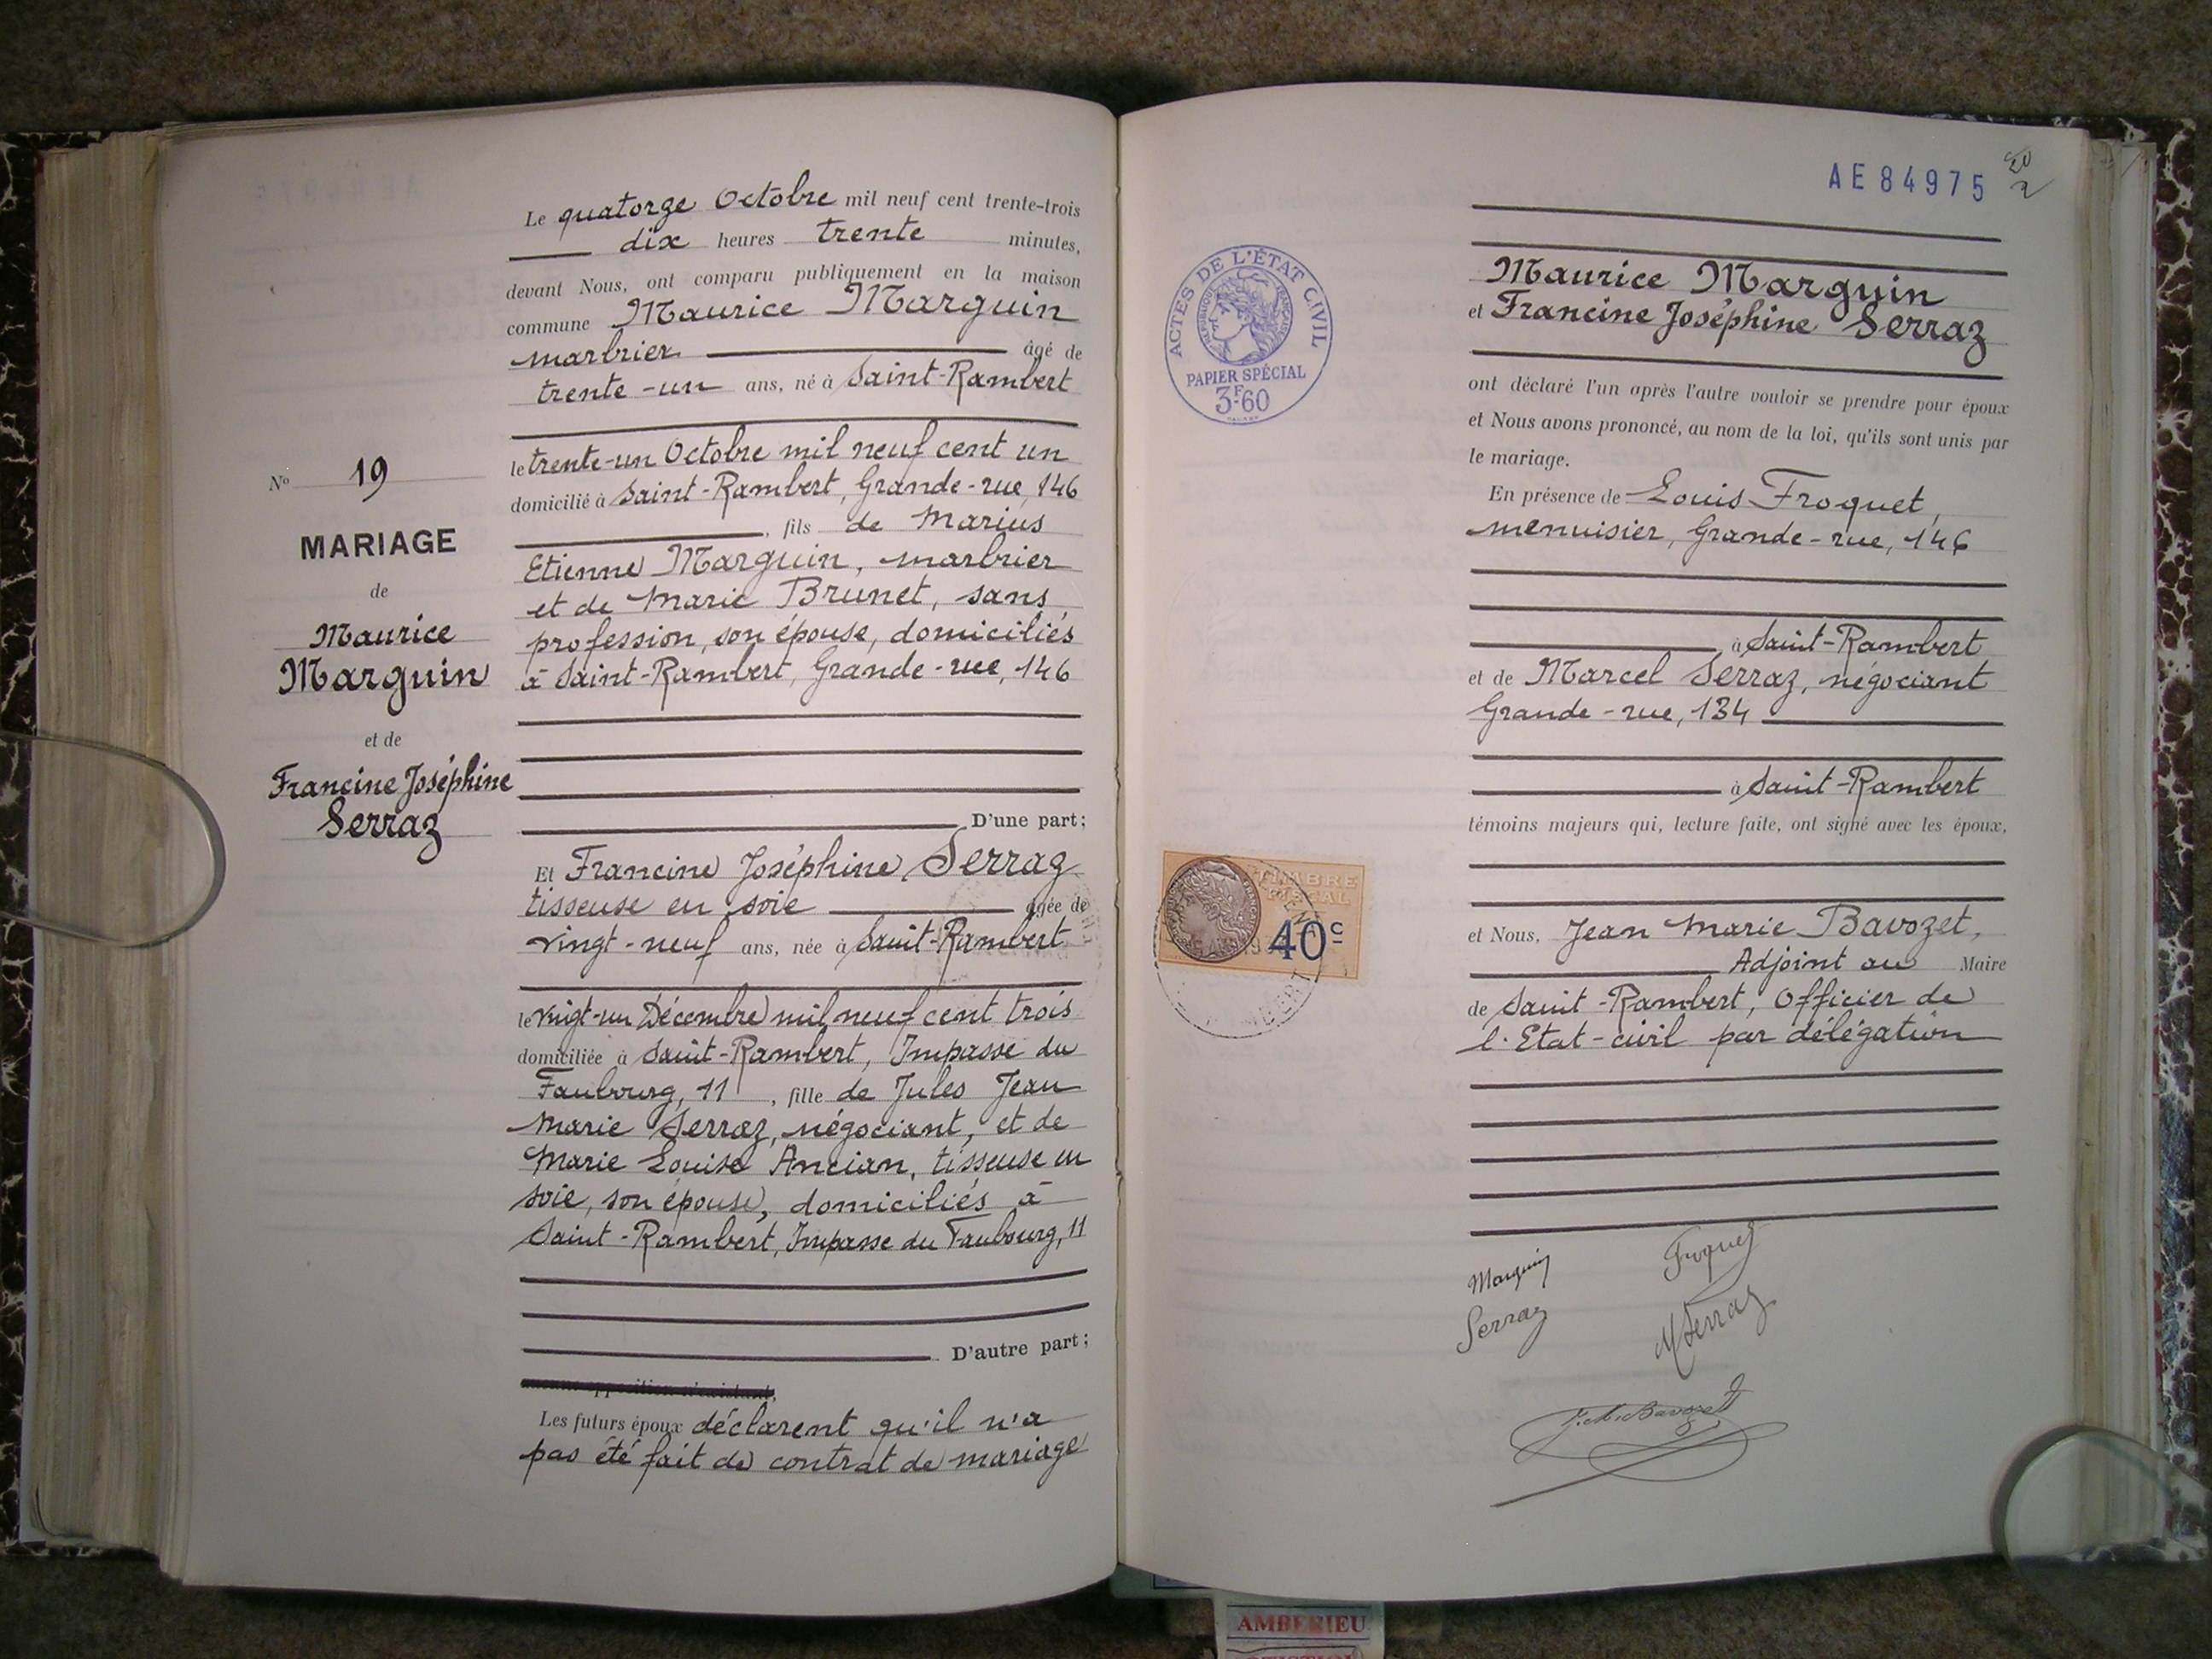 Le quatorze Octobre mil neuf cent trente-trois
dix heures trente minutes,
devant Nous, ont comparu publiquement en la maison
commune Maurice Marguin
marbrier âgé de
trente-un ans, né à Saint-Rambert
le trente-un Octobre mil neuf cent un
domicilié à Saint-Rambert, Grande-rue, 146
, fils de Marius
Etienne Marguin, marbrier
et de Marie Brunet, sans
profession, son épouse, domiciliés
à Saint-Rambert, Grande-rue, 146
D'une part;
Nº 19
MARIAGE
de
Maurice
Marguin
et de
Francine Joséphine
Serraz
Et Francine Joséphine Serraz
tisseuse en soie âgée de
vingt-neuf ans, née à Saint-Rambert
le vingt-un Décembre mil neuf cent trois
domiciliée à Saint-Rambert, Impasse du
Faubourg, 11, fille de Jules Jean
Marie Serraz, négociant, et de
Marie Louise Ancian, tisseuse en
soie, son épouse, domiciliés à
Saint-Rambert, Impasse du Faubourg, 11
D'autre part;
Les futurs époux déclarent qu'il n'a
pas été fait de contrat de mariage
AE84975
ACTES DE L'ÉTAT CIVIL
RÉPUBLIQUE FRANÇAISE
PAPIER SPÉCIAL
3F-60
Maurice Marguin
et Francine Joséphine Serraz
ont déclaré l'un après l'autre vouloir se prendre pour époux
et Nous avons prononcé, au nom de la loi, qu'ils sont unis par
le mariage.
En présence de Louis Froquet,
menuisier, Grande-rue, 146
à Saint-Rambert
et de Marcel Serraz, négociant
Grande-rue, 134
à Saint-Rambert
témoins majeurs qui, lecture faite, ont signé avec les époux,
TIMBRE
FISCAL
40c
et Nous, Jean Marie Bavozet,
Adjoint au Maire
de Saint-Rambert, Officier de
l'Etat-civil par délégation
Marguin
Froquet
Serraz
M Serraz
J.M. Bavozet
AMBERIEU